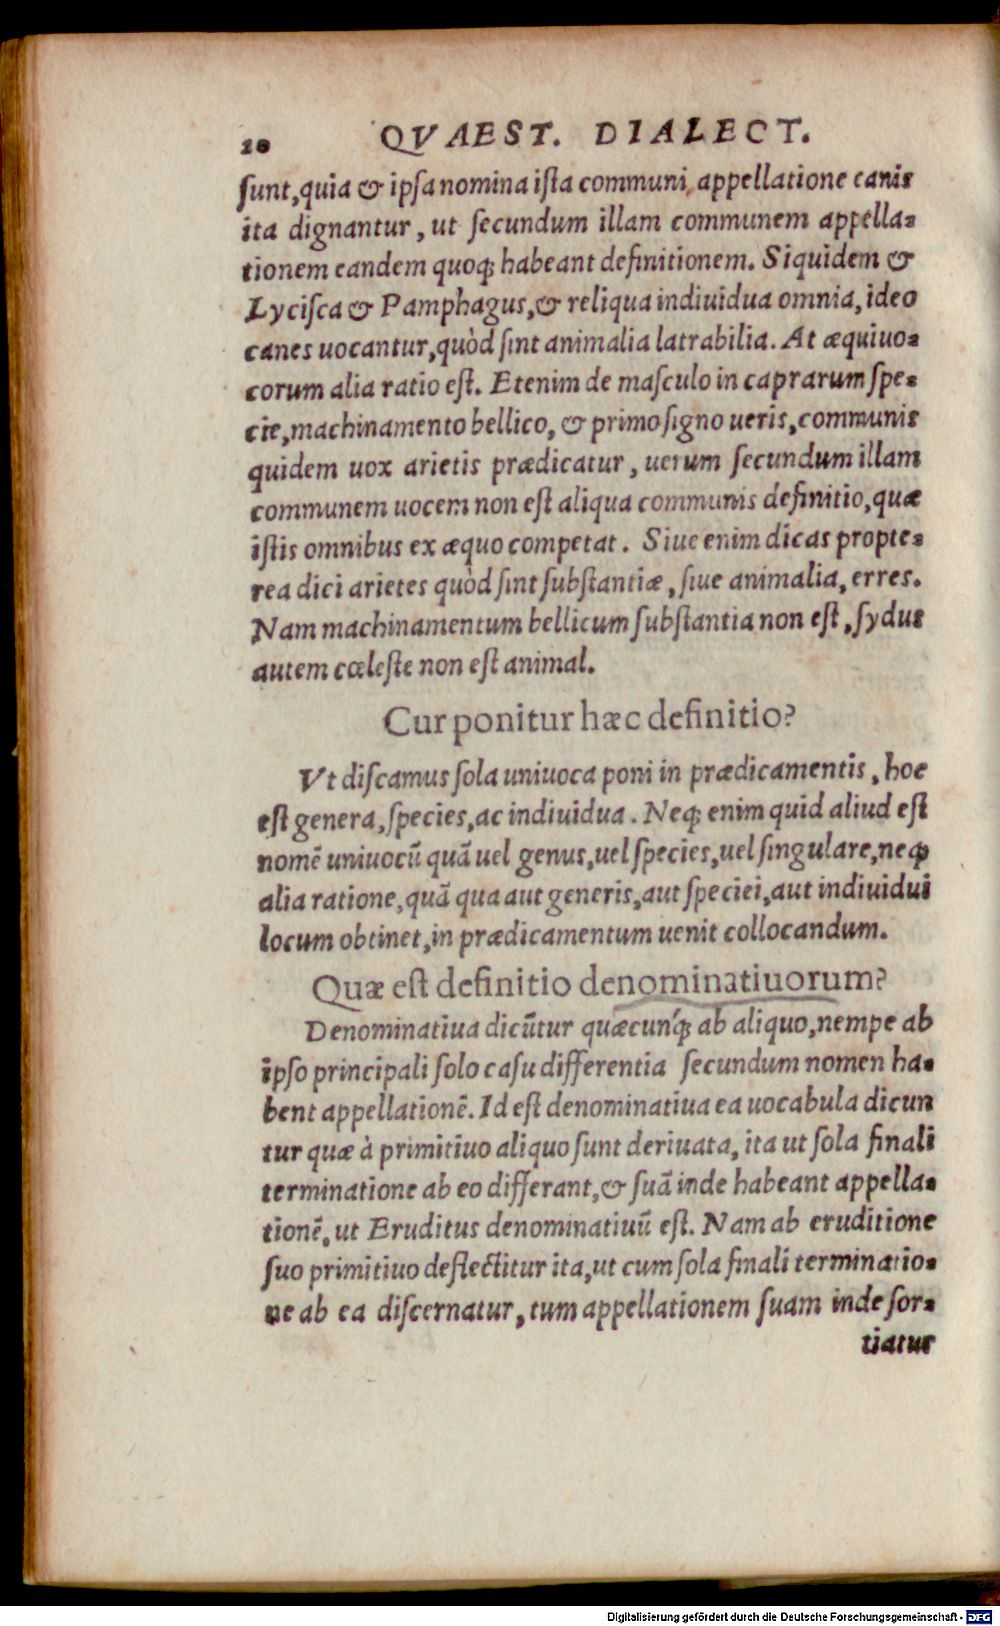 20 QVAEST. DIALECT.
sunt, quia & ipsa nomina ista communi appellatione canis
ita dignantur, ut secundum illam communem appella-
tionem eandem quoq; habeant definitionem. Siquidem &
Lycisca & Pamphagus, & reliqua indiuidua omnia, ideo
canes uocantur, quòd sint animalia latrabilia. At æquiuo-
corum alia ratio est. Etenim de masculo in caprarum spe-
cie, machinamento bellico, & primo signo ueris, communis
quidem uox arietis prædicatur, uerum secundum illam
communem uocem non est aliqua communis definitio, quæ
istis omnibus ex æquo competat. Siue enim dicas propte-
rea dici arietes quòd sint substantiæ, siue animalia, erres.
Nam machinamentum bellicum substantia non est, sydus
autem cœleste non est animal.
Cur ponitur hæc definitio?
Vt discamus sola uniuoca poni in prædicamentis, hoc
est genera, species, ac indiuidua. Neq; enim quid aliud est
nomē uniuocū quā uel genus, uel species, uel singulare, neq;
alia ratione, quā qua aut generis, aut speciei, aut indiuidui
locum obtinet, in prædicamentum uenit collocandum.
Quæ est definitio denominatiuorum?
Denominatiua dicūtur quæcunq́; ab aliquo, nempe ab
ipso principali solo casu differentia secundum nomen ha-
bent appellationē. Id est denominatiua ea uocabula dicun
tur quæ à primitiuo aliquo sunt deriuata, ita ut sola finali
terminatione ab eo differant, & suā inde habeant appella-
tionē, ut Eruditus denominatiuū est. Nam ab eruditione
suo primitiuo deflectitur ita, ut cum sola finali terminatio-
ne ab ea discernatur, tum appellationem suam inde sor-
tiatur
Digitalisierung gefördert durch die Deutsche Forschungsgemeinschaft - DFG